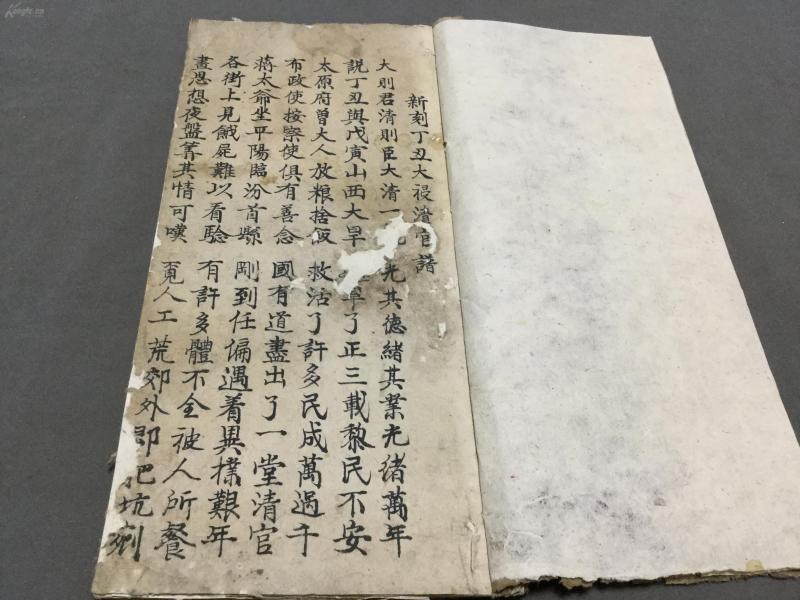 新刻丁丑大祲清官譜
大則君清則臣大清一光其德緒其業光緒萬年
説丁丑與戊寅山西大旱旱了正三載黎民不安
太原府曾大人放粮捨飯救活了許多民成萬過千
布政使按察使俱有善念國有道盡出了一堂清官
蔣太爺坐平陽臨汾首縣剛到任偏遇着異樣艱年
各街上見餓屍難以看驗有許多體不全被人所餐
晝思想夜盤筭其情可嘆覓人工荒郊外即把坑剜
Kongfz.cn